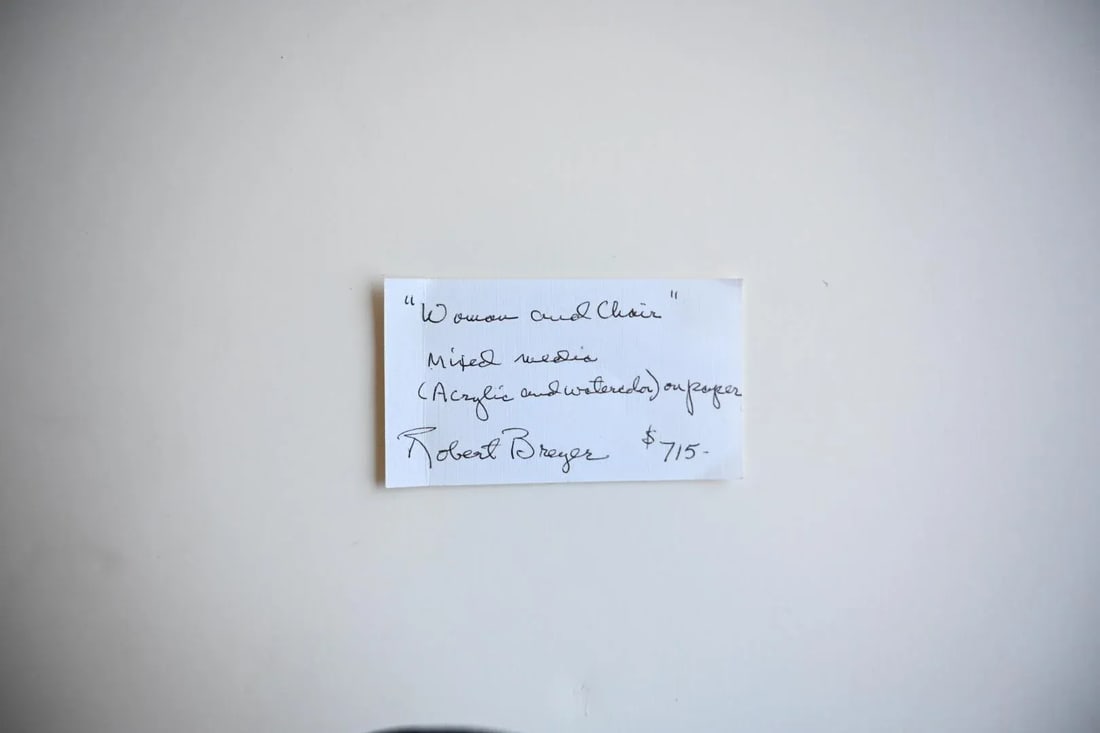 "Woman and Chair"
Mixed media
(Acrylic and watercolor) on paper
Robert Breyer $715-